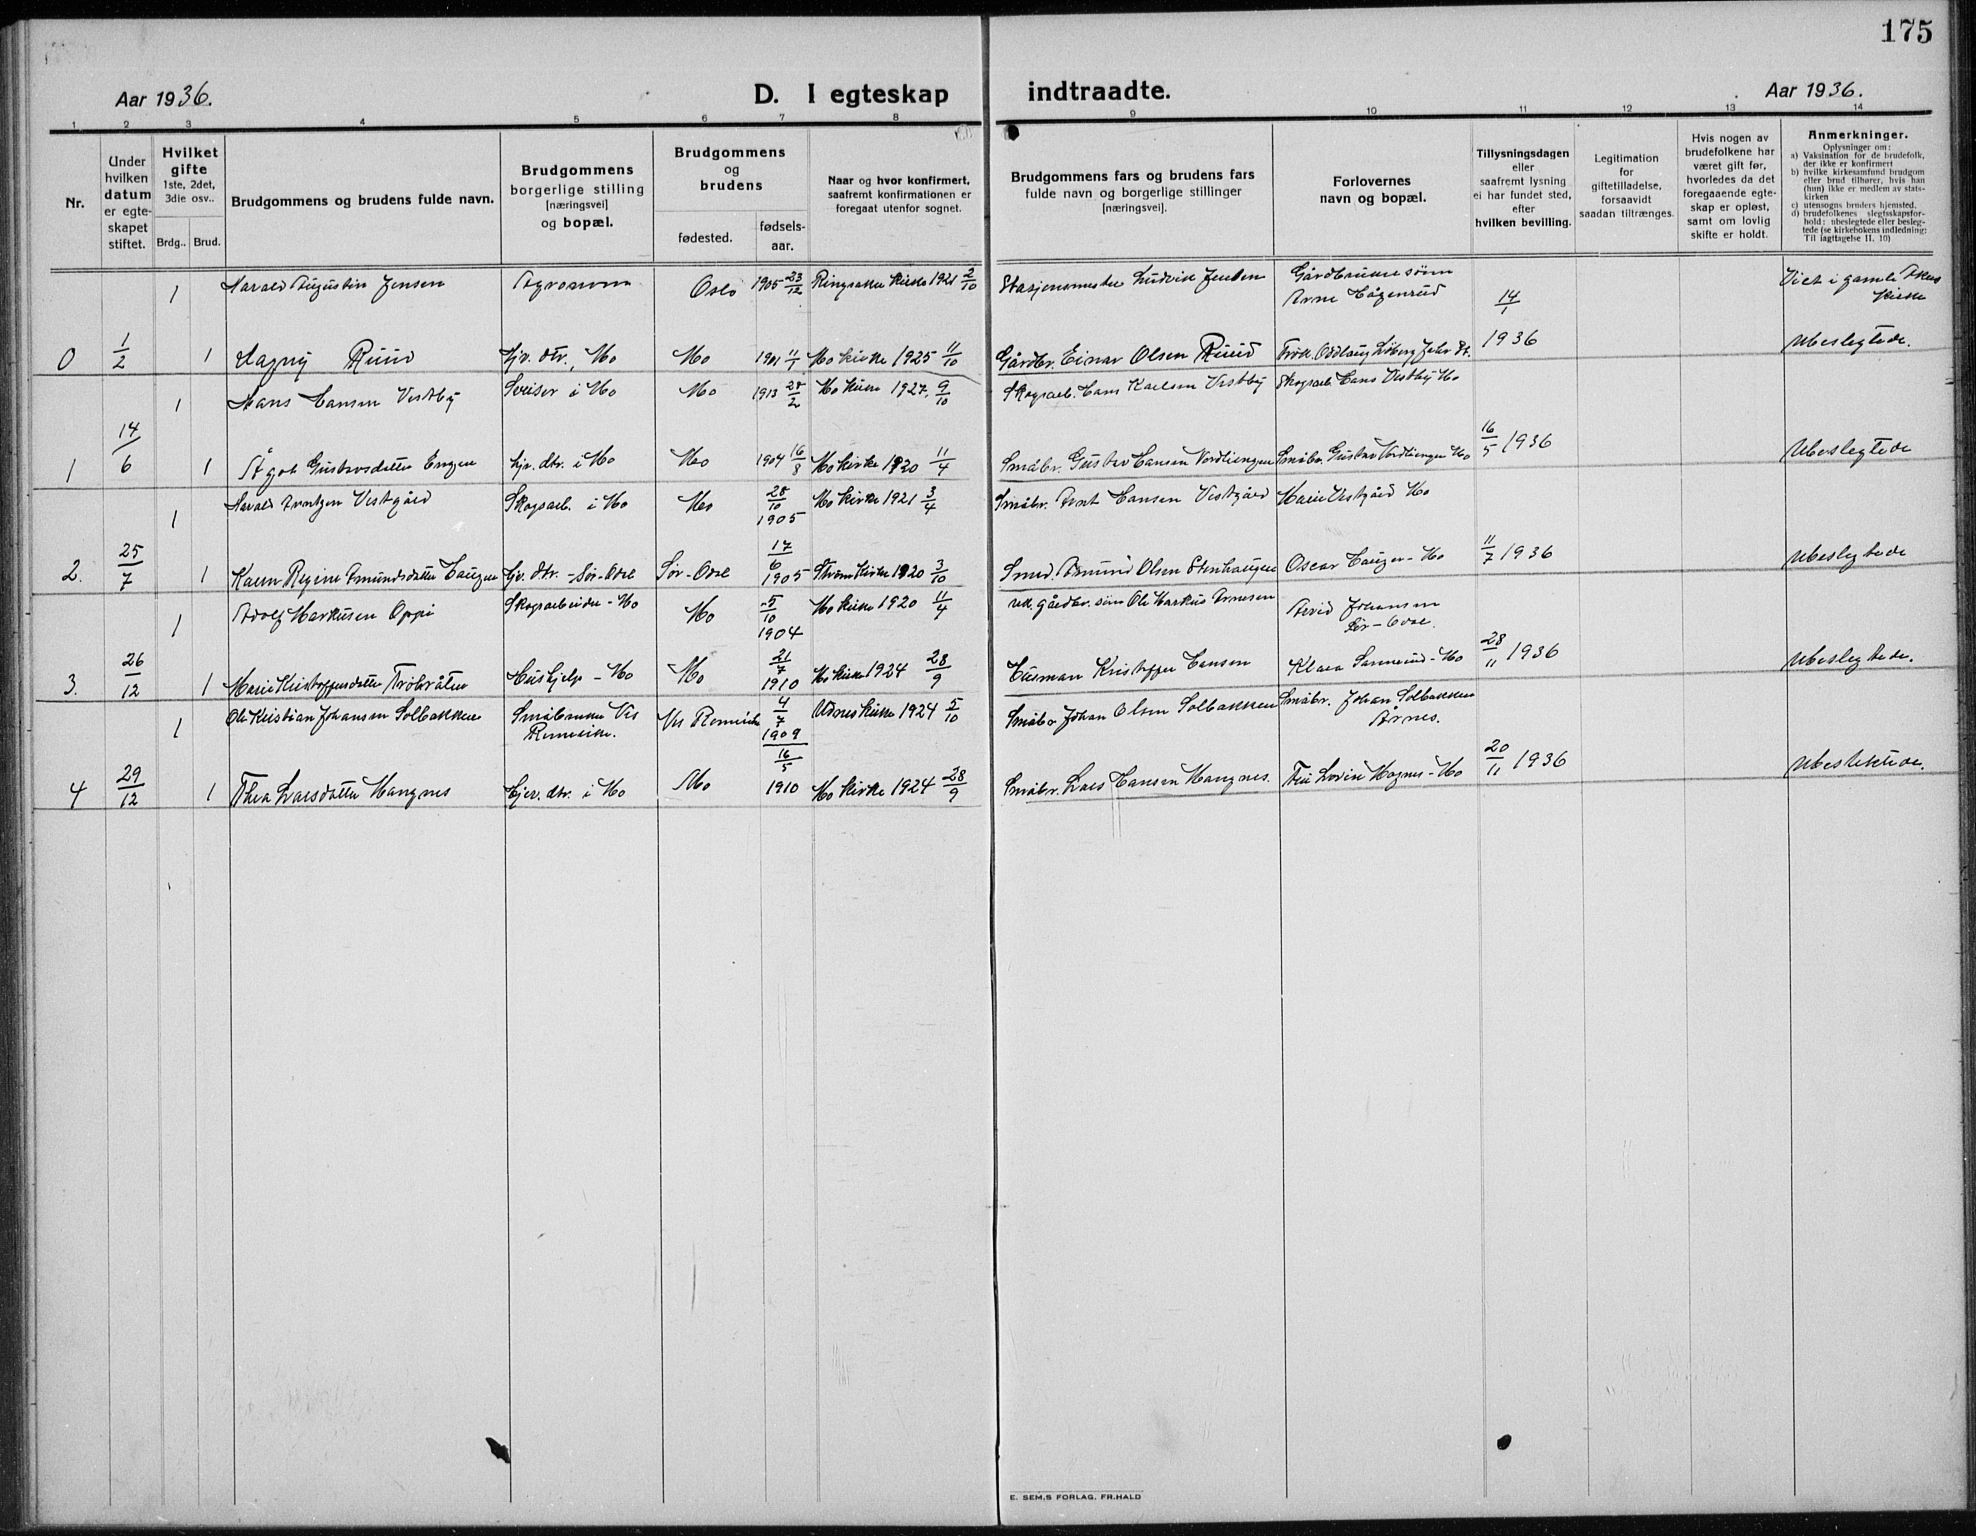 175
Aar 1936.
D. I egteskap indtraadte.
Aar 1936.
1 2 3 4 5 6 7 8 9 10 11 12 13 14
Nr.
Under hvilken datum er egte-skapet stiftet.
Hvilket gifte
1ste, 2det, 3die osv..
Brdg.. Brud.
Brudgommens og brudens fulde navn.
Brudgommens borgerlige stilling [næringsvei] og bopæl.
Brudgommens og brudens
fødested.
fødsels-aar.
Naar og hvor konfirmert, saafremt konfirmationen er foregaat utenfor sognet.
Brudgommens fars og brudens fars fulde navn og borgerlige stillinger [næringsvei].
Forlovernes navn og bopæl.
Tillysningsdagen eller saafremt lysning ei har fundet sted, efter hvilken bevilling.
Legitimation for giftetilladelse, forsaavidt saadan tiltrænges.
Hvis nogen av brudefolkene har været gift før, hvorledes da det foregaaende egte-skap er opløst, samt om lovlig skifte er holdt.
Anmerkninger.
Oplysninger om:
a) Vaksination for de brudefolk, der ikke er konfirmert
b) hvilke kirkesamfund brudgom eller brud tilhører, hvis han (hun) ikke er medlem av stats-kirken
c) utensogns bruders hjemsted.
d) brudefolkenes slegtsskapsfor-hold: ubeslegtede eller besleg-tede (se kirkebokens indledning: Til iagttagelse II. 10)
1 Harald Augustin Jensen Agronom Oslo 1905 23/12 Ringsaker kirke 1921 2/10 Stasjonsmester Ludvik Jensen Gårdbrukersønn Arne Hågenrud 14/1 Viet i gamle Akers kirke
0 1/2 1 Dagny Ruud Hjv. dtr., Mo Mo 1901 11/1 Mo kirke 1925 11/10 Gårdbr. Einar Olsen Ruud Frøk. Oddlaug 1936 Ubeslegtede.
1 Hans Hansen Vestby Sveiser i Mo Mo 1913 28/2 Mo kirke 1927. 9/10 Skogsarb. Hans Karlsen Vestby Skogsarb. Hans Vestby Mo
1 14/6 1 Ågot Gustavsdatter Engen Hjv. dtr. i Mo Mo 1904 16/8 Mo kirke 1920 11/4 Småbr. Gustav Hansen Nordliengen Småbr. Gustav Nordliengen Mo 16/5 1936 Ubeslegtede
1 Harald Arntzen Vestgård Skogsarb. i Mo Mo 28/10 1905 Mo kirke 1921 3/4 Småbr. Arnt Hansen Vestgård Marie Vestgård Mo
2. 25/7 1 Karen Regine Amundsdatter Haugen Hjv. dtr. - Sør-Odal Sør-Odal 17/6 1905 Strøm kirke 1920 3/10 Smed. Amund Olsen Stenhaugen Oscar Haugen - Mo 11/7 1936 Ubeslegtede
1 Adolf Markusen Oppi Skogsarbeider - Mo Mo 5/10 1904 Mo kirke 1920 11/4 gårdbr. sønn Ole Markus Arnesen Arvid Johansen Sør-Odal.
3. 26/12 1 Marie Kristoffersdatter Trøbråten Hushjelp - Mo Mo 21/7 1910 Mo kirke 1924 28/9 Husmann Kristoffer Hansen Klara Sannerud - Mo 28/11 1936 Ubeslegtede.
1 Ole Kristian Johansen Solbakken Småbruker Nes Romerike. Nes Romerike 4/7 1909 Udnes kirke 1924 5/10 Småbr. Johan Olsen Solbakken Småbr. Johan Solbakken Årnes.
4 29/12 1 Thea Larsdatter Mangnes Hjv. dtr. i Mo Mo 16/5 1910 Mo kirke 1924 28/9 Småbr. Lars Hansen Mangnes. Fru Lovise Magnes - Mo 20/11 1936 Ubeslektede.
E. SEM,S FORLAG, FR.HALD